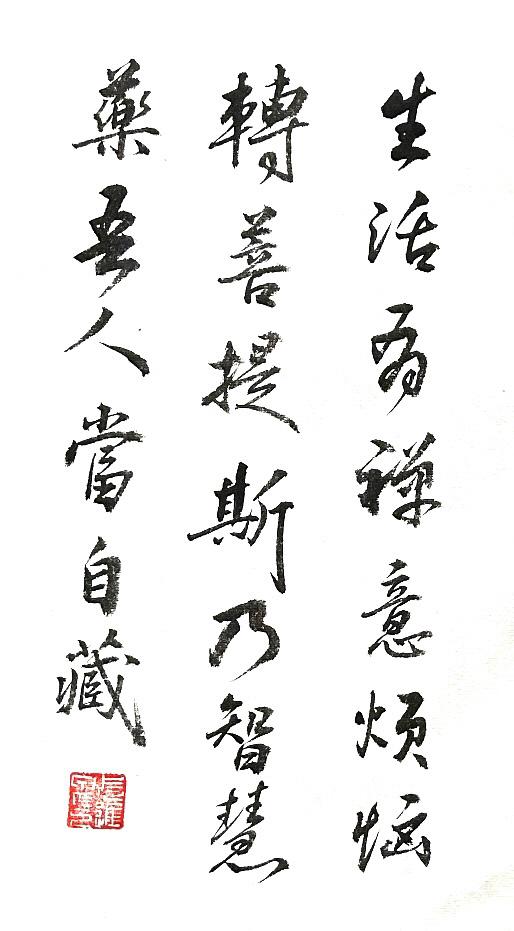 生活有禅意煩惱
轉菩提斯乃智慧
藥吾人當自藏